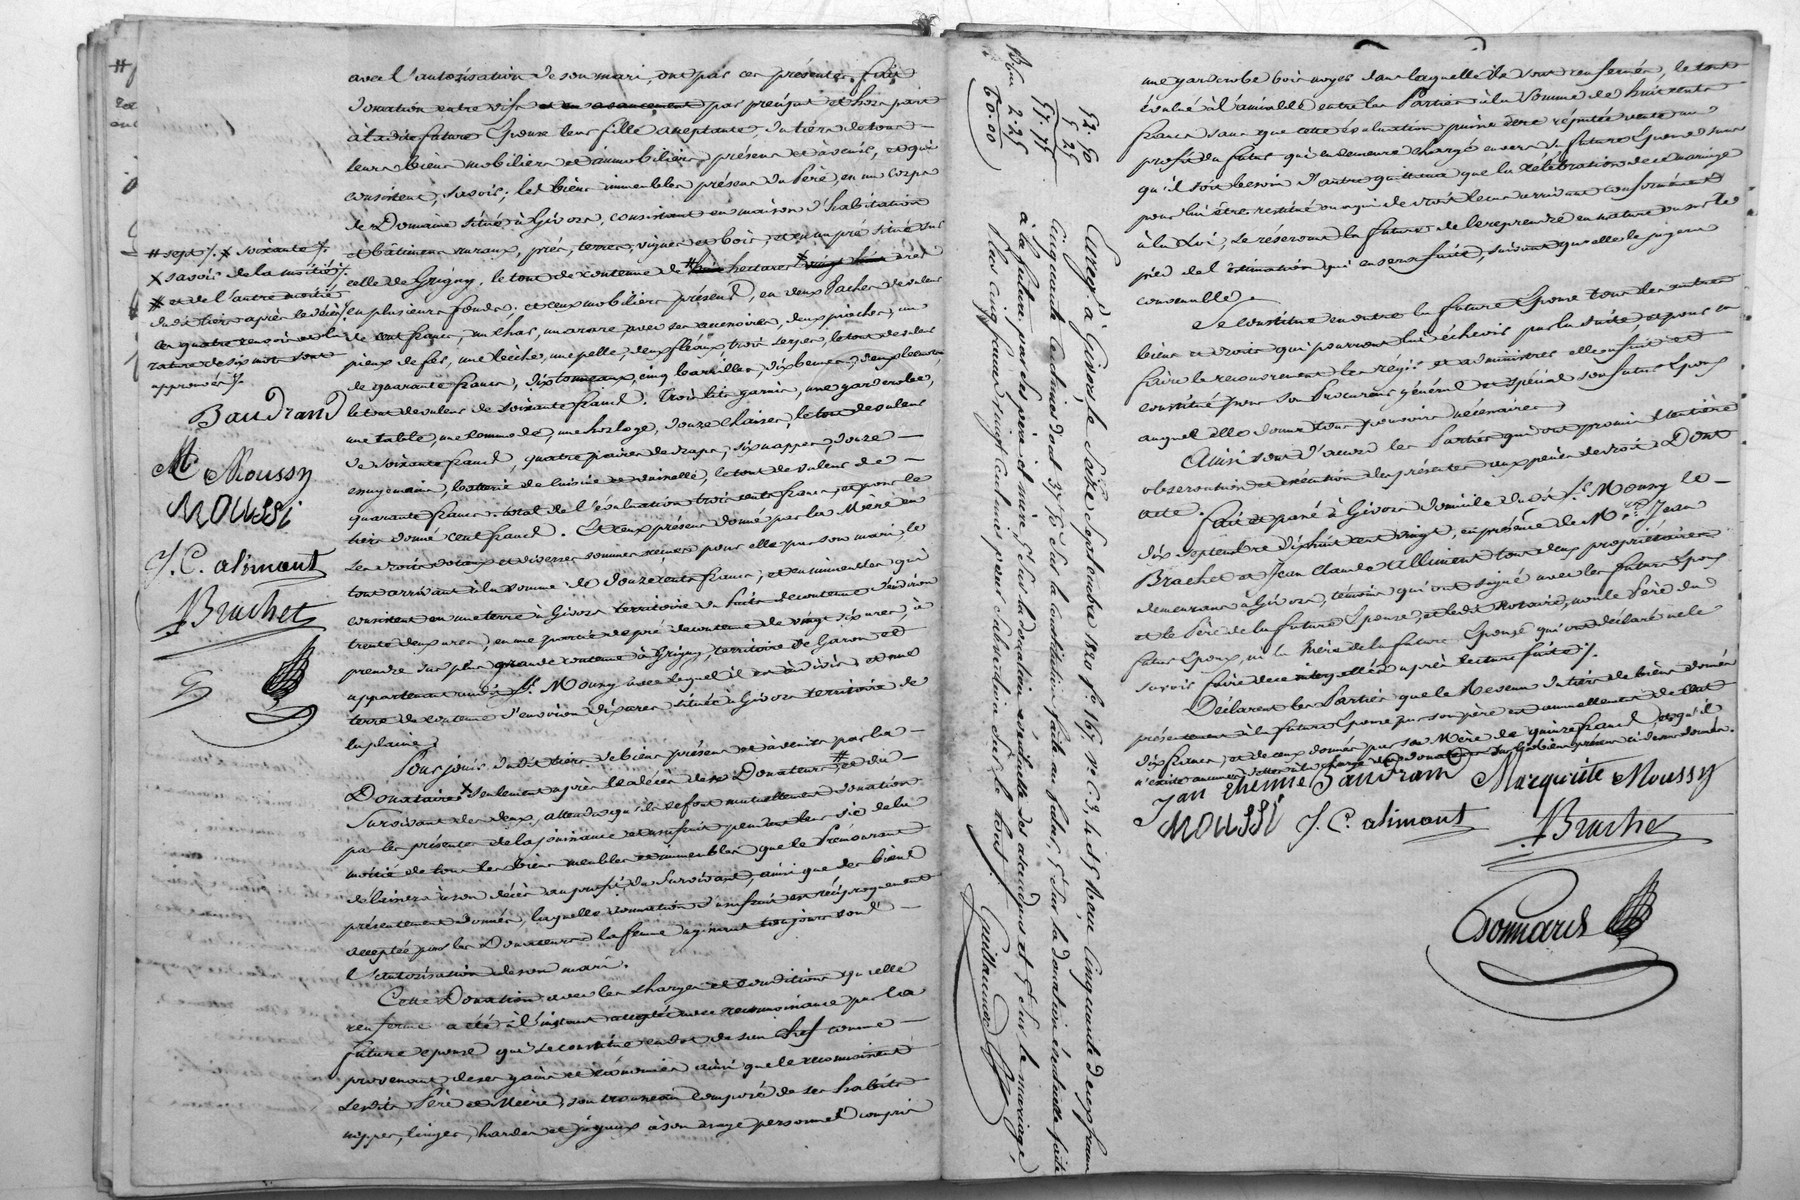 avec l'autorisation de son mari, ont par ces présentes fait
donation entre vifs et en avancement par préciput et hors part
à la dite future Epouse leur fille acceptante du tiers de tous
leurs biens mobiliers et immobiliers, présens et à venir, et qui
consistent, savoir; les biens immeubles présens du Père, en un corps
de Domaine situé à Givors, consistant en maison d'habitation
et bâtimens ruraux, prés, terres, vignes et bois, et en un pré situé sur
celle de Grigny, le tout de contenue de # huit hectares x vingt ares
en plusieurs fonds, et ceux mobiliers présens, en deux vaches de valeur
de cent francs, un char, un araire, avec ses accessoires, deux pioches, un
pieux de fer, une bèche, une pelle, deux fléaux, trois serpes, le tout de valeur
de quarante francs, dix tonneaux, cinq barrilles, dix bennes, deux
le tout de valeur de soixante francs. Trois lits garnis, une garderobe,
une table, une commode, une horloge, douze chaises, le tout de valeur
de soixante francs, quatre paires de draps, six nappes, douze
essuyemains, batterie de cuisine et vaisselle, le tout de valeur de
quarante francs. total de l'évaluation trois cents francs, et pour le
tiers donné cent francs. Et ceux présens donné par la Mère en
ses droits dotaux et diverses sommes reçues pour elle par son mari, le
tout arrivant à la somme de douze cents francs, et en immeubles qui
consistent en une terre à Givors territoire du de contenue d'environ
trente deux ares, en une partie de pré de contenue de vingt six ares, à
prendre sur plus grande contenue à Grigny, territoire de Garon et
appartenant audit Sr. Moussy avec lequel il est à diviser, et une
terre de contenue d'environ dix ares située à Givors territoire de
la plaine.
Pour jouir dudit tiers de biens présens et à venir par la
Donataire x seulement après le décès de ses Donateurs # et du
Survivant des deux, attendu qu'ils se font mutuellement donation
par les présentes de la jouissance et usufruit pendant leur vie de la
moitié de tous les biens meubles et immeubles que le Prémourant
délaissera à son décès au profit du Survivant, ainsi que des biens
présentement donnés, laquelle donation d'usufruit est réciproquement
acceptée par les Donateurs, la femme agissant toujours sous
l'autorisation de son mari.
Cette Donation avec les charges et conditions qu'elle
renferme a été à l'instant acceptée avec reconnaissance par la
future epouse qui se constitue en dot de son chef comme
provenant de ses gains et économies ainsi que le reconnaissent
lesdits Père et Mère, son trousseau composé de ses habits
nippes, linges, hardes et joyaux à son usage personnel compris
# sept /. x soixante /.
x savoir de la moitié /.
# et de l'autre moitié
dudit tiers après le décès /.
les quatre renvois et la
rature de six mots sont
approuvés /.
Baudrand
Mte Moussy
MOUSSI
J. C. alimant
J Brachet
52. 50
5. 25
57. 75
Bon 2. 25
60. 00
Enreg.é à Givors le Seize Septembre 1820 f.° 167 r.° C. 3, 4 et 5 Reçu Cinquante deux francs
Cinquante Centimes dont 37 f. 50 sur la constitution faite au futur, 5 f. sur la donation éventuelle faite
à la future par ses père et mère, 5 f. sur la donation éventuelle des ascendans et 5 f. sur le mariage,
Plus Cinq francs vingt cinq Centimes pour subvention sur le tout.
Guillaumot
une garderobe bois noyer dans laquelle ils sont renfermés, le tout
évalué à l'amiable entre les Parties à la Somme de huit cents
francs sans que cette évaluation puisse être réputée vente au
profit du futur qui en demeure chargé envers sa future Epouse sans
qu'il soit besoin d'autre quittance que la célébration de ce mariage
pour lui être restitué ou à qui de droit le cas arrivant conformément
à la Loi, se réservant la future de le reprendre en nature ou sur le
pied de l'estimation qui en sera faite, suivant qu'elle le jugera
convenable.
Se constitue en outre la future Epouse tous les autres
biens et droits qui pourront lui échevir par la suite, et pour en
faire le recouvrement les régir et administrer elle en fait et
constitue pour son Procureur général et spécial son futur Epoux
auquel elle donne tous pouvoirs nécessaires.
Ainsi sont d'accord les Parties qui ont promis l'entière
observation et exécution des présentes aux peines de droit. Dont
acte. Fait et passé à Givors domicile dudit Sr. Moussy le
dix septembre dix huit cent vingt, en présence de Mrs. Jean
Brachet et Jean Claude Alliment tous deux propriétaires
demeurans à Givors, témoins qui ont signé avec les futurs Epoux
et le Père de la future Epouse, et ledit Notaire, non le Père du
futur Epoux, ni la Mère de la future Epouse qui ont déclaré ne le
savoir faire de ce interpellés après lecture faite /.
Déclarent les Parties que le Revenu du tiers des biens donnés
présentement à la future Epouse par son père est annuellement de cent
dix francs, et de ceux donnés par sa Mère de quinze francs, et qu'il
n'existe aucunes dettes à la charge des donateurs sur les biens présens ci dessus donnés.
Jan Etienne Baudrand Marguerite Moussy
MOUSSI J. C. alimant J Brachet
Bonnard